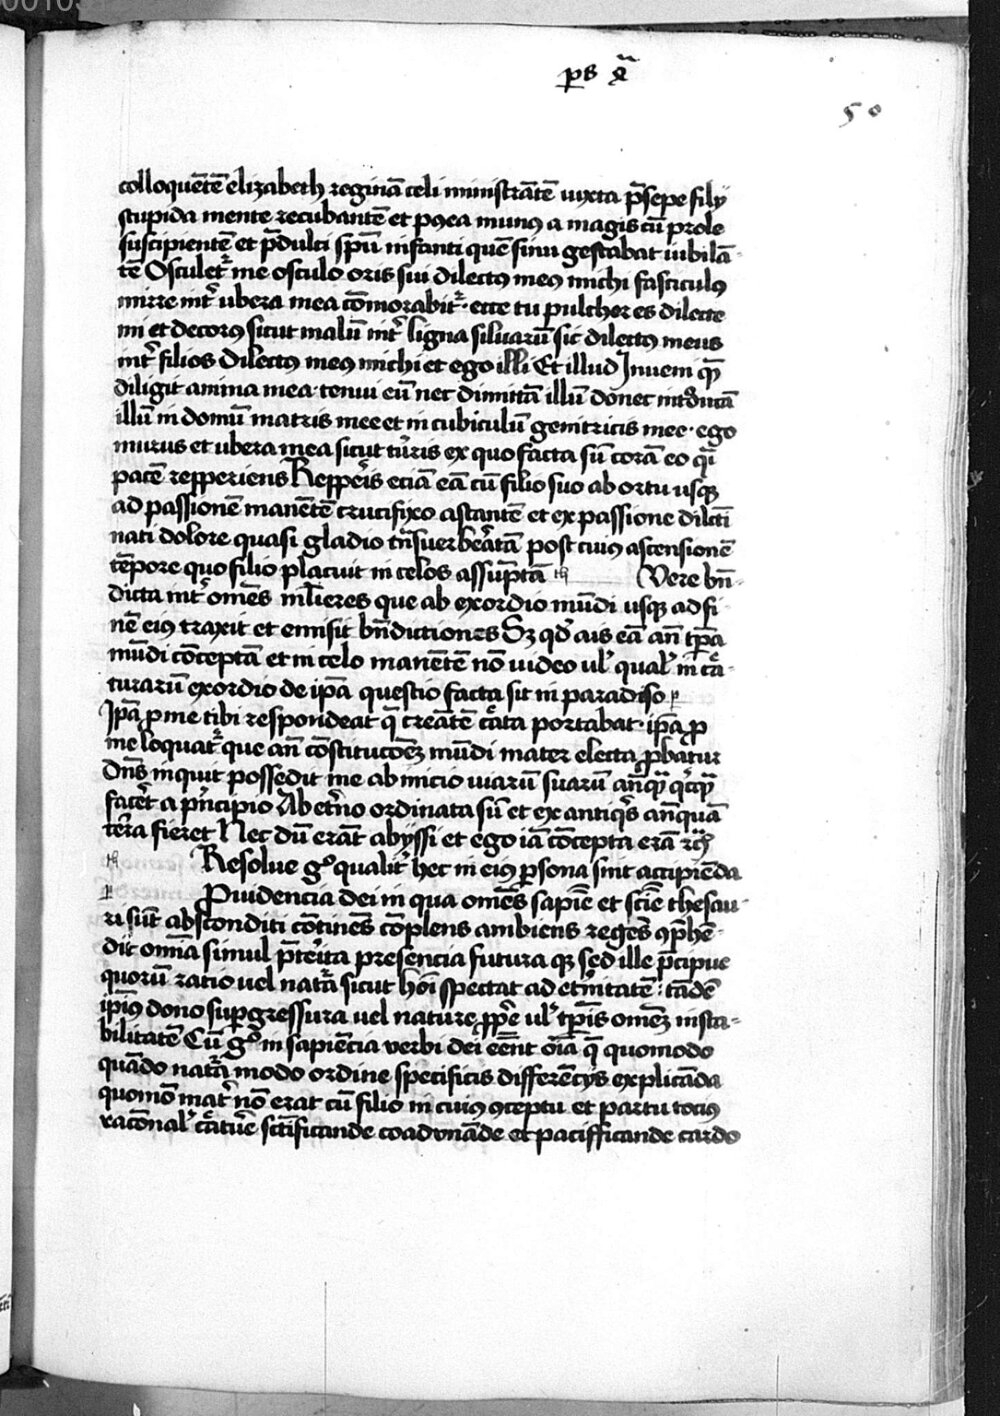 ps xᷓ
50
colloquētē elizabeth reginā celi ministrātē iuxta p̄sepe filij
stupida mente recubantē et p9ea munus a magis cū prole
suscipientē et p̄dulci spū infanti quē sinu gestabat iubilā-
tē Osculet᷑ me osculo oris sui dilectus meus michi fasciculus
mirre int᷑ ubera mea cōmorabit᷑ · ecce tu pulcher es dilecte
mi et decorus sicut malū int᷑ ligna siluarū sic dilectus meus
int᷑ filios Dilectus meus michi et ego illi Et illud Inueni quē
diligit anima mea · tenui eū nec dimittā illū donec int᷑ducā
illū in domū matris mee et in cubiculū genitricis mee · ego
murus et ubera mea sicut tur᷑is ex quo facta sū corā eo q̄i
pacē repperiens Reppe᷑is eciā eā cū filio suo ab ortu usq̨
ad passionē manētē crucifixo astantē et ex passione dilcī
nati dolore quasi gladio t᷑nsuerbe᷑atā post cuius ascensionē
tēpore quo filio placuit in celos assūptā th Vere bn̄-
dicta int᷑ om̄es ml̄ieres que ab exordio mūdi usq̨ ad fi
nē eius traxit et emisit bn̄dictiones Sz qd̄ ais eā an̄ tp̄a
mūdi cōceptā et in celo manētē nō video ul᷑ qual᷑ in c᷑a-
turarū exordio de ip̄a questio facta sit in paradiso p
Ip̄a p me tibi respondeat q̄ creātē c᷑ata portabat · ip̄a p
me loquat᷑ que an̄ cōstitucōez mūdi mater electa p̱batur
Dn̄s inquit possedit me ab inicio uiarū suarū an̄q̄ q̄cq̄
face᷑t a p᷑ncipio Ab et᷑no ordinata sū et ex antiq̄s an̄quā
te᷑ra fieret Nec dū erāt abyssi et ego iā cōcepta erā rc̄
th Resolue g° qualit᷑ hec in eius p̱sona sint accipiēda
p Puidencia dei in qua om̄es sapiē et sciē thesau-
ri sūt absconditi cōtinēs cōplens ambiens regēs 9p̄hē-
dit om̄ia simul p̄te᷑ita presencia futura q̨ sed ille p̄cipue
quorū ratio uel nat᷑a sicut hōi spectat ad et᷑nitatē : tādē
ip̄ius dono sup̱gressura uel nature p̱p̄e ul᷑ tp̄is om̄ez insta-
bilitatē Cū g° in sapiēcia verbi dei eēnt oīa q̄ quomodo
quādo nat᷑a modo ordine specificis differētijs explicāda
quomō mat᷑ nō erat cū filio in cuius 9ceptu et partu tocius
racōnal᷑ c᷑atu᷑e sc̄ificande coadunāde et pacifficande cardo